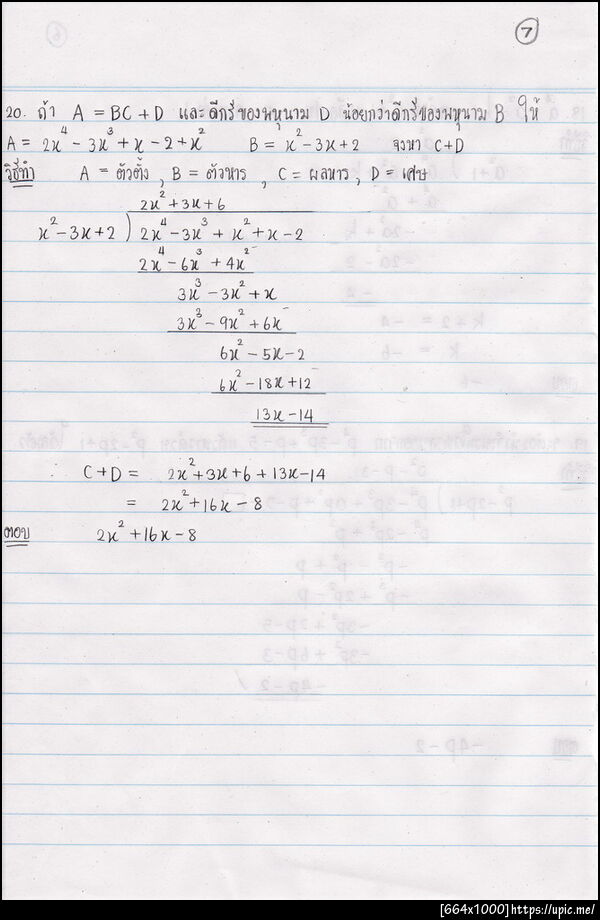 7
20. ถ้า A = BC + D และดีกรีของพหุนาม D น้อยกว่าดีกรีของพหุนาม B ให้
A = 2x⁴ - 3x³ + x - 2 + x² B = x² - 3x + 2 จงหา C+D
วิธีทำ A = ตัวตั้ง , B = ตัวหาร , C = ผลหาร , D = เศษ
2x² + 3x + 6
x² - 3x + 2 ) 2x⁴ - 3x³ + x² + x - 2
2x⁴ - 6x³ + 4x² -
3x³ - 3x² + x
3x³ - 9x² + 6x -
6x² - 5x - 2
6x² - 18x + 12 -
13x - 14
C + D = 2x² + 3x + 6 + 13x - 14
= 2x² + 16x - 8
ตอบ 2x² + 16x - 8
[664x1000]https://upic.me/